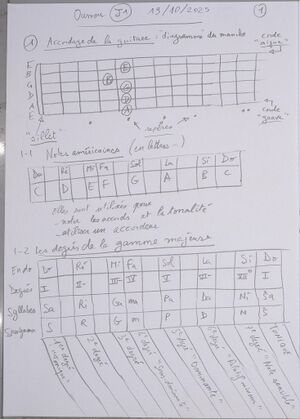 J1 13/10/2025 1
1 Accordage de la guitare : diagramme du manche
"corde aigue"
E
B
G
D
A
E
E
B
G
D
A
"sillet"
repères
"corde grave"
1-1 Notes américaines (en lettres)
Do Ré Mi Fa Sol La Si Do
C D E F G A B C
elles sont utilisées pour
- noter les accords et la tonalité
- utiliser un accordeur
1-2 Les degrés de la gamme majeure
Do Ré Mi Fa Sol La Si Do
Degrés I II- III- IV V VI- VII° I
Syllabes Sa Ri Ga ma Pa Da Ni Sa
S R G m P D N S
1er degré "tonique"
2e degré
3e degré
4e degré "sous dominante"
5e degré "Dominante"
6e degré
7e degré "note sensible"
Tonique